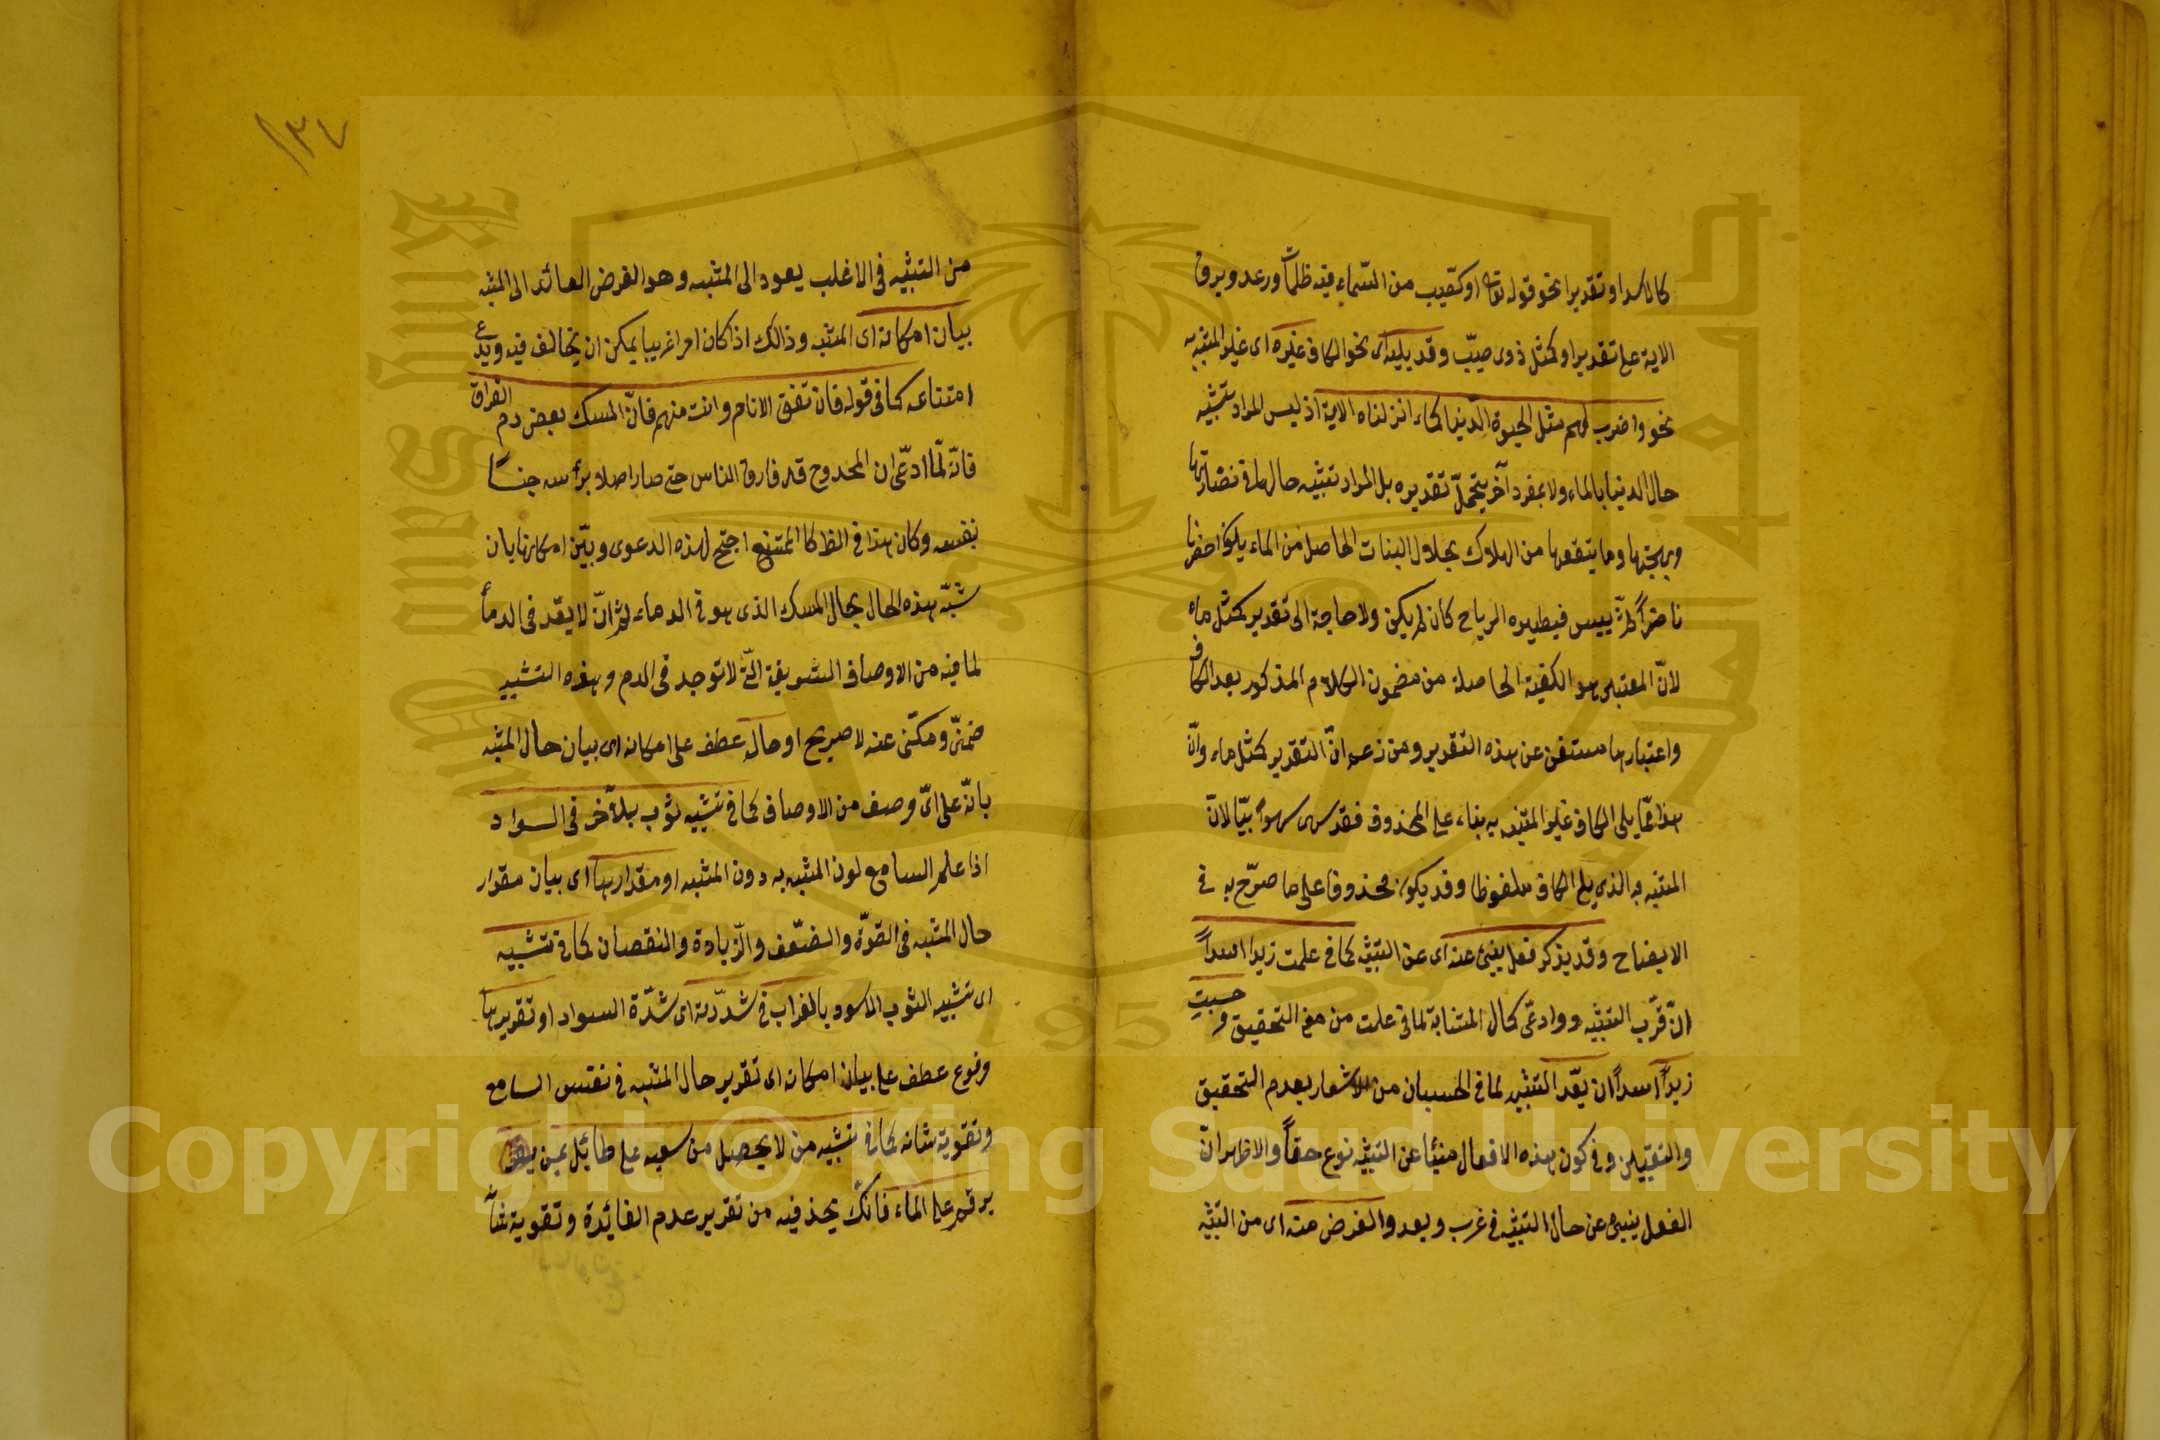 كالاسد او تقديرا نحو قوله تعالى او كصيب من السماء فيه ظلمات ورعد وبرق
الاية على تقدير او كمثل ذوى صيّب وقد يليه اى نحو الكاف غيره اى غير المشبه به
نحو واضرب لهم مثل الحيوة الدّنيا كماء انزلناه الاية اذ ليس المراد تشبيه
حال الدنيا بالماء ولا بمفرد آخر يتمحلّ تقديره بل المراد تشبيه حالها فى نضارتها
وبهجتها وما يتعقبها من الهلاك بحال النبات الحاصل من الماء يكون اخضر
ناضراً ثمّ ييبس فيطيره الرياح كان لم يكن ولا حاجة الى تقدير كمثل ماء
لانّ المعتبر هو الكيفية الحاصلة من مضمون الكلام المذكور بعد الكاف
واعتبارها مستغن عن هذه التقدير ومن زعم انّ التقدير كمثل ماء وانّ
هذا ممّا يلى الكاف غير المشبه به بناء على المحذوف فقد سهى سهواً بيّنا لانّ
المشبه به الذى يلى الكاف ملفوظا وقد يكون محذوفا على ما صرّح به فى
الايضاح وقد يذكر فعل ينبئ عنه اى عن التشبيه كما فى علمت زيدا اسداً
انّ قرّب التشبيه وادعّى كمال المشابهة لما فى علمت من معنى التحقيق وحسبت
زيداً اسداً ان بعّد التشبيه لما فى الحسبان من الاشعار بعدم التحقيق
والتيقن وفى كون هذه الافعال منبئا عن التشبيه نوع خفاً والاظهر انّ
الفعل ينبئ عن حال التشبيه فى قرب وبعد والغرض منه اى من التشبيه
١٣٤
من التشبيه فى الاغلب يعود الى المشبه وهو الغرض العائد الى المشبه
بيان امكانه اى المشبه وذالك اذا كان امرا غريبا يمكن ان يخالف فيه ويدعى
امتناعه كما فى قوله فان تفق الانام وانت منهم فانّ المسك بعض دم الغزال
فانّه لمّا ادعّى ان الممدوح قد فاق الناس حتى صار اصلا برأسه جنساً
بنفسه وكان هذا فى الظ كالممتنع احتج لهذه الدعوى وبيّن امكانها بان
شبّه هذه الحال بحال المسك الذى هو فى الدماء ثم انّه لا يعّد فى الدمأ
لما فيه من الاوصاف الشريفة الّتى لا توجد فى الدم وهذه التشبيه
ضمنىّ ومكنّى عنه لا صريح او حاله عطف على امكانه اى بيان حال المشبه
بانّه على اىّ وصف من الاوصاف كما فى تشبيه ثوب بآخر فى السواد
اذا علم السامع لون المشبه به دون المشبه او مقدارها اى بيان مقدار
حال المشبه فى القوّة والضعّف والزّيادة والنقصان كما فى تشبيه
اى تشبيه الثوب الاسود بالغراب فى شدّته اى شدّة السواد او تقريرها
مرفوع عطف على بيان امكانه اى تقرير حال المشبه فى نفس السامع
وتقوية شانه كما فى تشبيه من لا يحصل من سعيه على طائيل بمن
يرقم على الماء فانّك تجد فيه من تقرير عدم الفائدة وتقوية شأنه
Copyright © King Saud University
King Saud University
جامعة الملك سعود
195